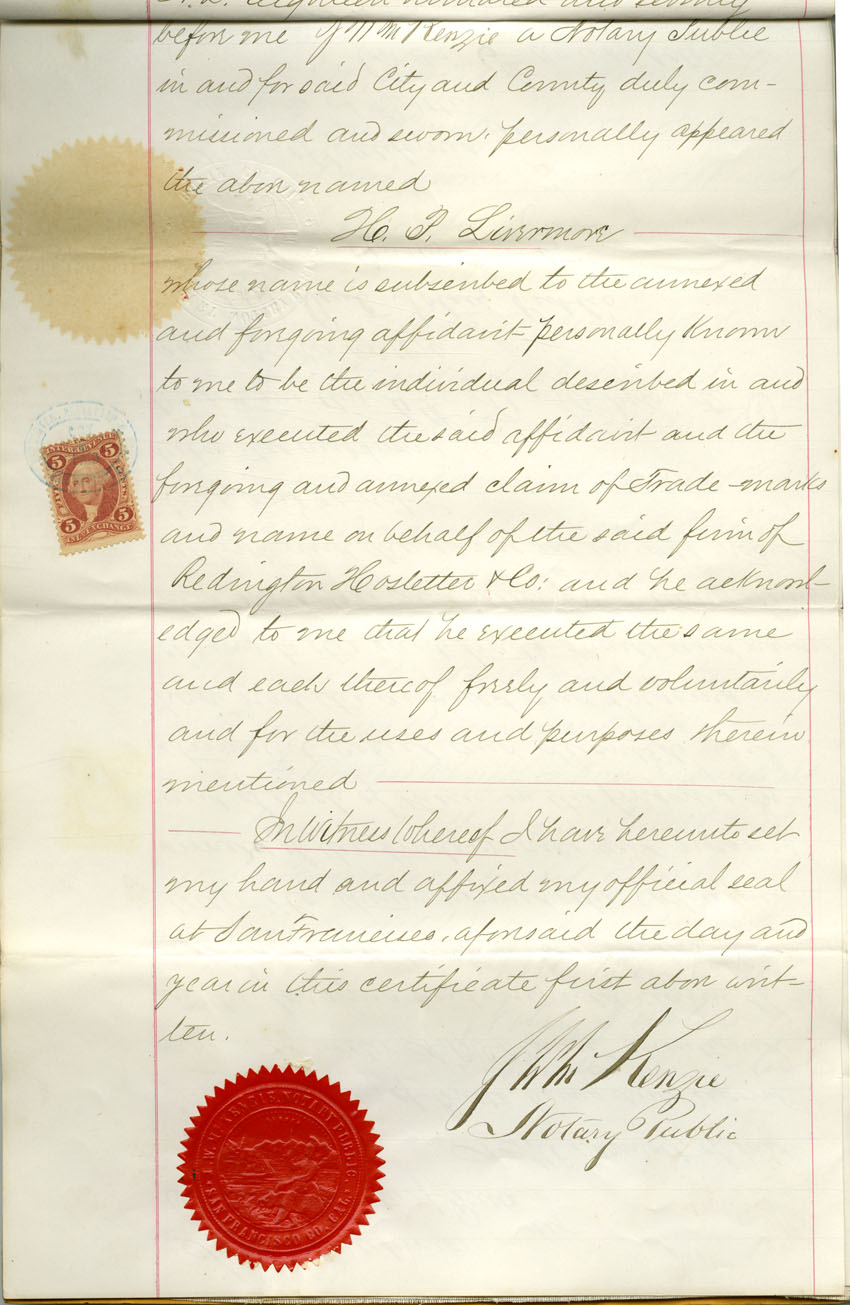 hundred and seventy
before me J W McKenzie a Notary Public
in and for said City and County duly com-
missioned and sworn, personally appeared
the above named
H. P. Livermore
whose name is subscribed to the annexed
and foregoing affidavit personally Known
to me to be the individual described in and
who executed the said affidavit and the
foregoing and annexed claim of Trade-marks
and name on behalf of the said firm of
Redington Hostetter & Co: and he acknowl-
edged to me that he executed the same
and each thereof freely and voluntarily
and for the uses and purposes therein
mentioned
In Witness Whereof I have hereunto set
my hand and affixed my official seal
at San Francisco, aforesaid the day and
year in this certificate first above writ-
ten.
J W McKenzie
Notary Public
5 INTER. REVENUE 5
5 INL. EXCHANGE 5
J. W. McKENZIE, NOTARY PUBLIC,
SAN FRANCISCO CO. CAL.